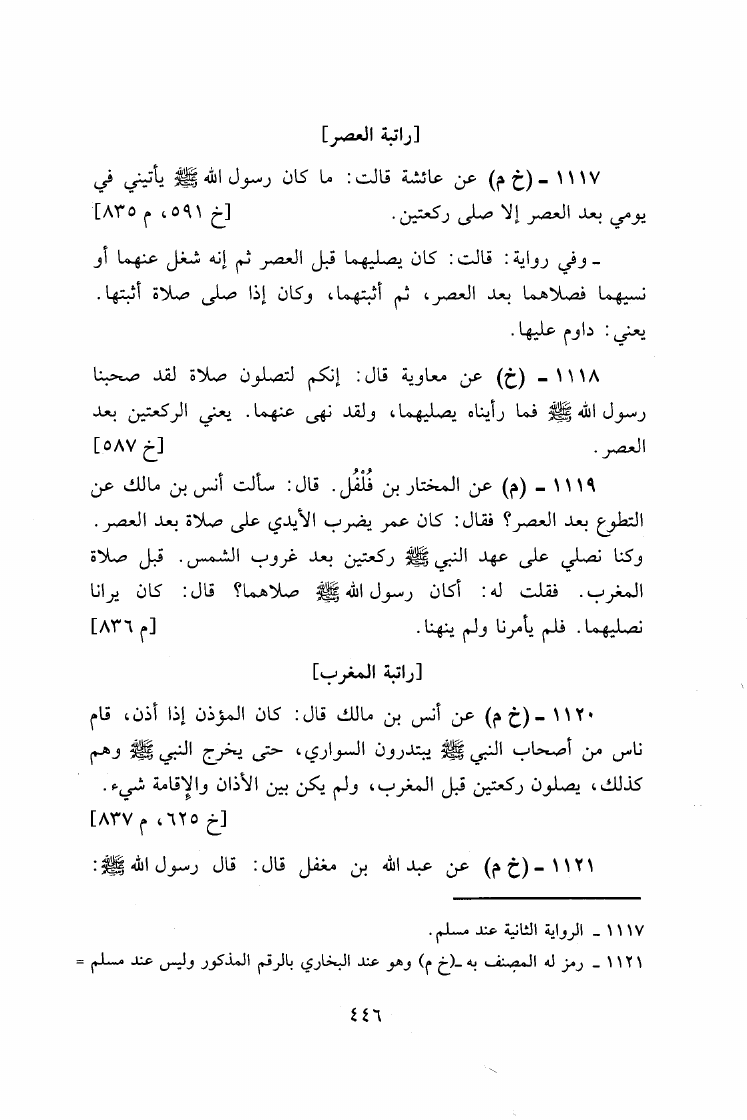 [راتبة العصر]
١١١٧ - (خ م) عن عائشة قالت: ما كان رسول الله ﷺ يأتيني في
يومي بعد العصر إلا صلى ركعتين. [خ ٥٩١، م ٨٣٥]
- وفي رواية: قالت: كان يصليهما قبل العصر ثم إنه شغل عنهما أو
نسيهما فصلاهما بعد العصر، ثم أثبتهما، وكان إذا صلى صلاة أثبتها.
يعني: داوم عليها.
١١١٨ - (خ) عن معاوية قال: إنكم لتصلون صلاة لقد صحبنا
رسول الله ﷺ فما رأيناه يصليهما، ولقد نهى عنهما. يعني الركعتين بعد
العصر. [خ ٥٨٧]
١١١٩ - (م) عن المختار بن فُلْفُل. قال: سألت أنس بن مالك عن
التطوع بعد العصر؟ فقال: كان عمر يضرب الأيدي على صلاة بعد العصر.
وكنا نصلي على عهد النبي ﷺ ركعتين بعد غروب الشمس. قبل صلاة
المغرب. فقلت له: أكان رسول الله ﷺ صلاهما؟ قال: كان يرانا
نصليهما. فلم يأمرنا ولم ينهنا. [م ٨٣٦]
[راتبة المغرب]
١١٢٠ - (خ م) عن أنس بن مالك قال: كان المؤذن إذا أذن، قام
ناس من أصحاب النبي ﷺ يبتدرون السواري، حتى يخرج النبي ﷺ وهم
كذلك، يصلون ركعتين قبل المغرب، ولم يكن بين الأذان والإقامة شيء.
[خ ٦٢٥، م ٨٣٧]
١١٢١ - (خ م) عن عبد الله بن مغفل قال: قال رسول الله ﷺ:
١١١٧ - الرواية الثانية عند مسلم.
١١٢١ - رمز له المصنف به ـ(خ م) وهو عند البخاري بالرقم المذكور وليس عند مسلم =
٤٤٦